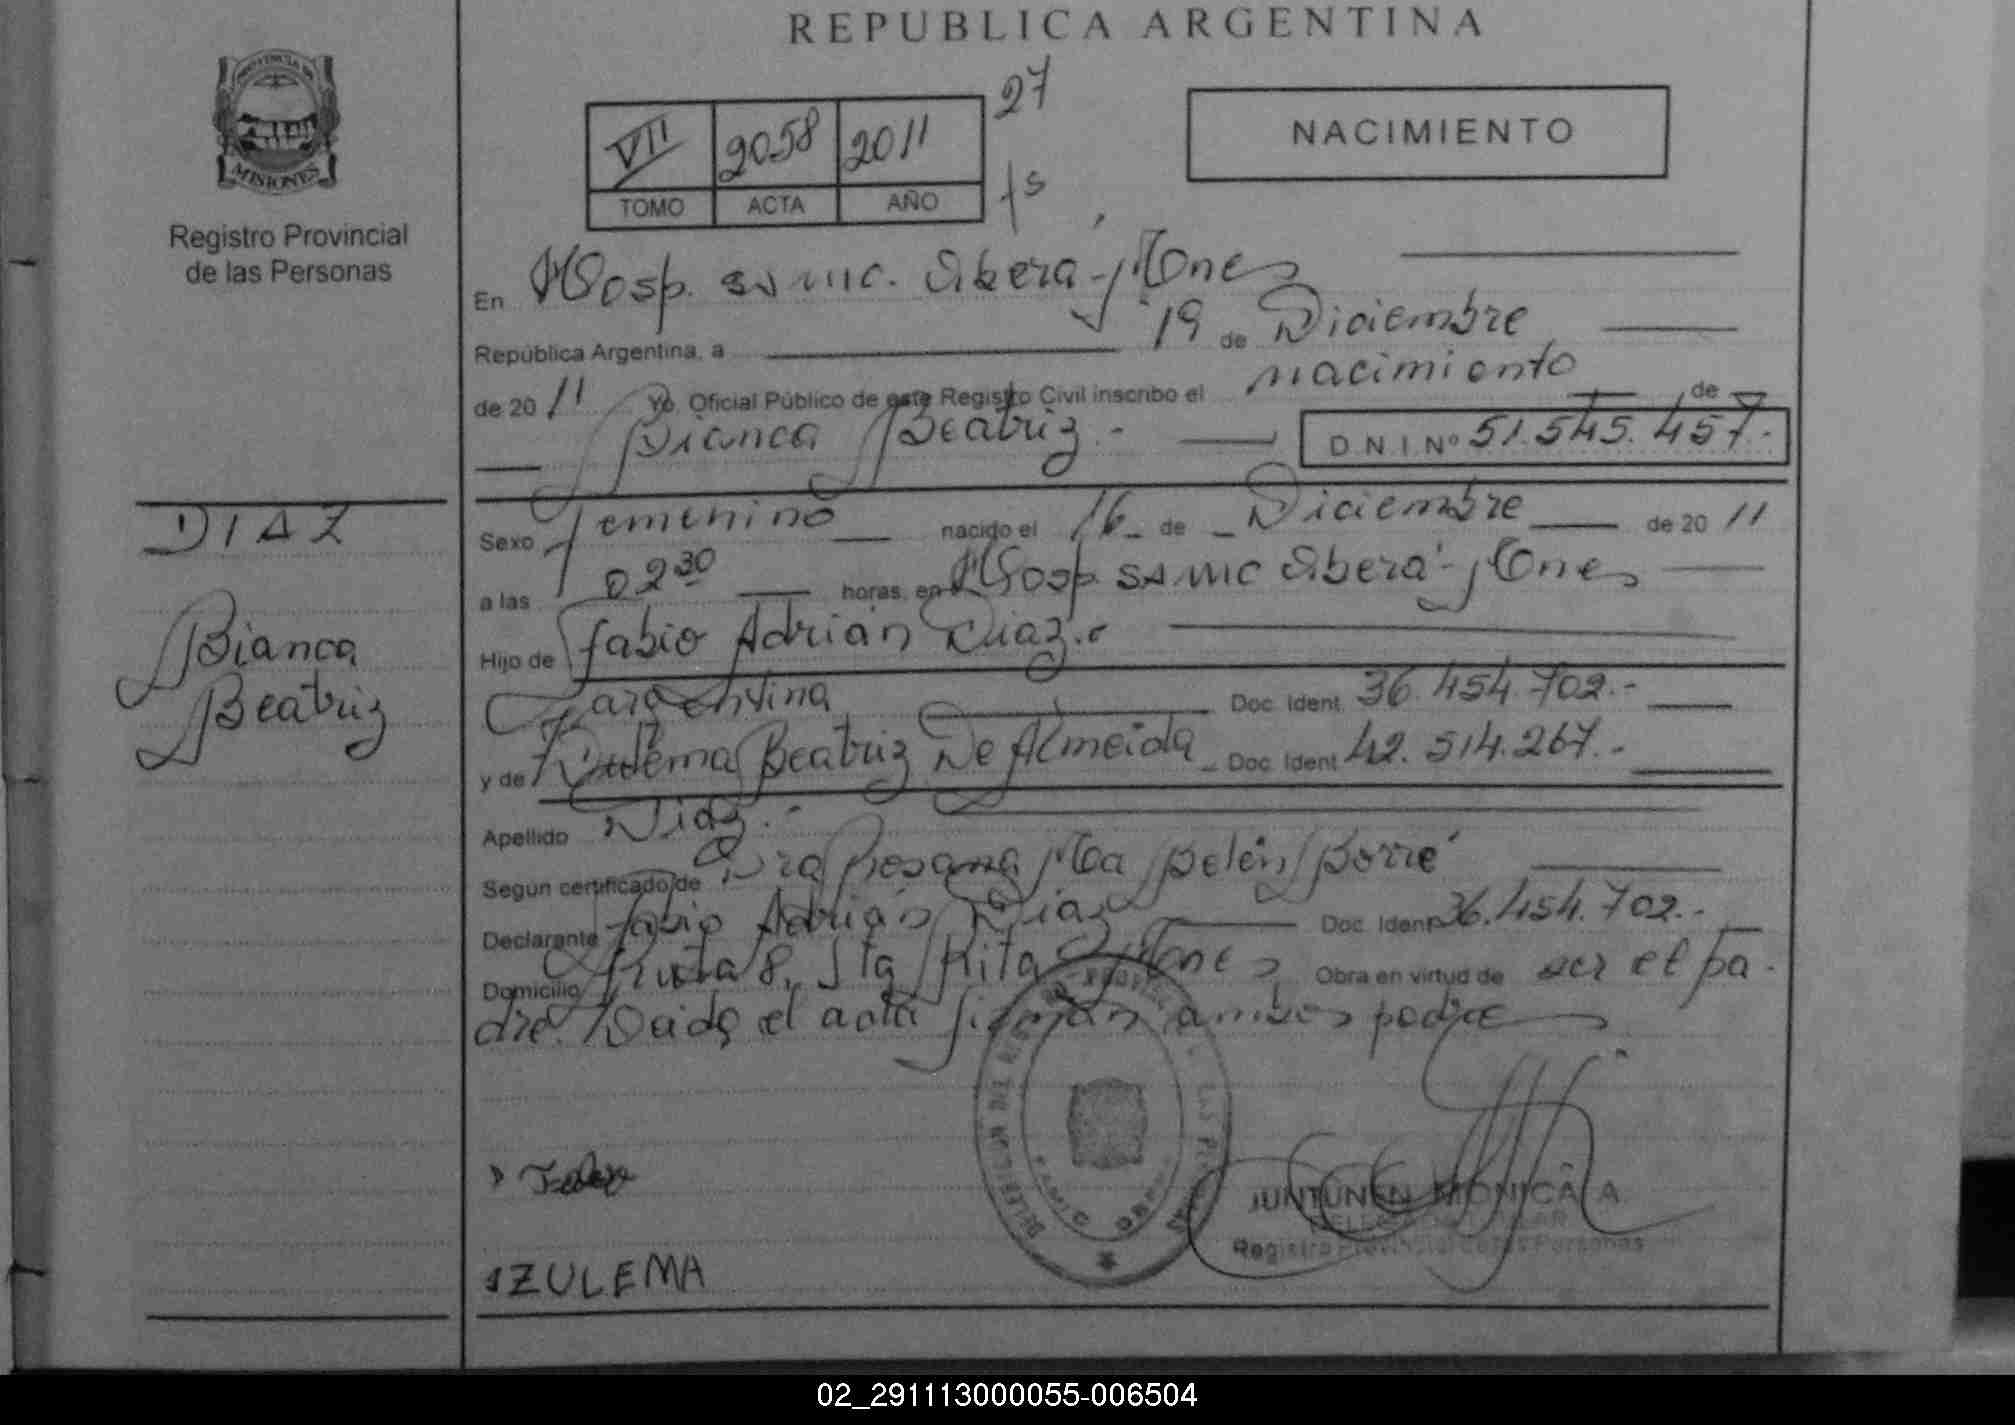 REPUBLICA ARGENTINA
PROVINCIA DE
MISIONES
Registro Provincial
de las Personas
VII 2058 2011
TOMO ACTA AÑO
27
fs
NACIMIENTO
En Hosp. SAMIC. Oberá - Mnes
República Argentina, a 19 de Diciembre
de 2011 Yo, Oficial Público de este Registro Civil inscribo el nacimiento de
Bianca Beatriz.- D.N.I. Nº 51.545.457.-
DIAZ
Bianca
Beatriz
Sexo femenino nacido el 16 de Diciembre de 2011
a las 02 30 horas, en Hosp. SAMIC Oberá - Mnes
Hijo de Fabio Adrián Diaz.-
argentina Doc. Ident. 36.454.702.-
y de Zulema Beatriz De Almeida Doc. Ident. 42.514.267.-
Apellido Diaz.-
Según certificado de Dra Rosana Ma Belén Borré
Declarante Fabio Adrián Diaz Doc. Ident. 36.454.702.-
Domicilio Ruta 8, Sta Rita Mnes Obra en virtud de ser el pa-
dre. Leida el acta firman ambos padre
JUNTUNEN MONICA A.
Registro Provincial de las Personas
ZULEMA
02_291113000055-006504